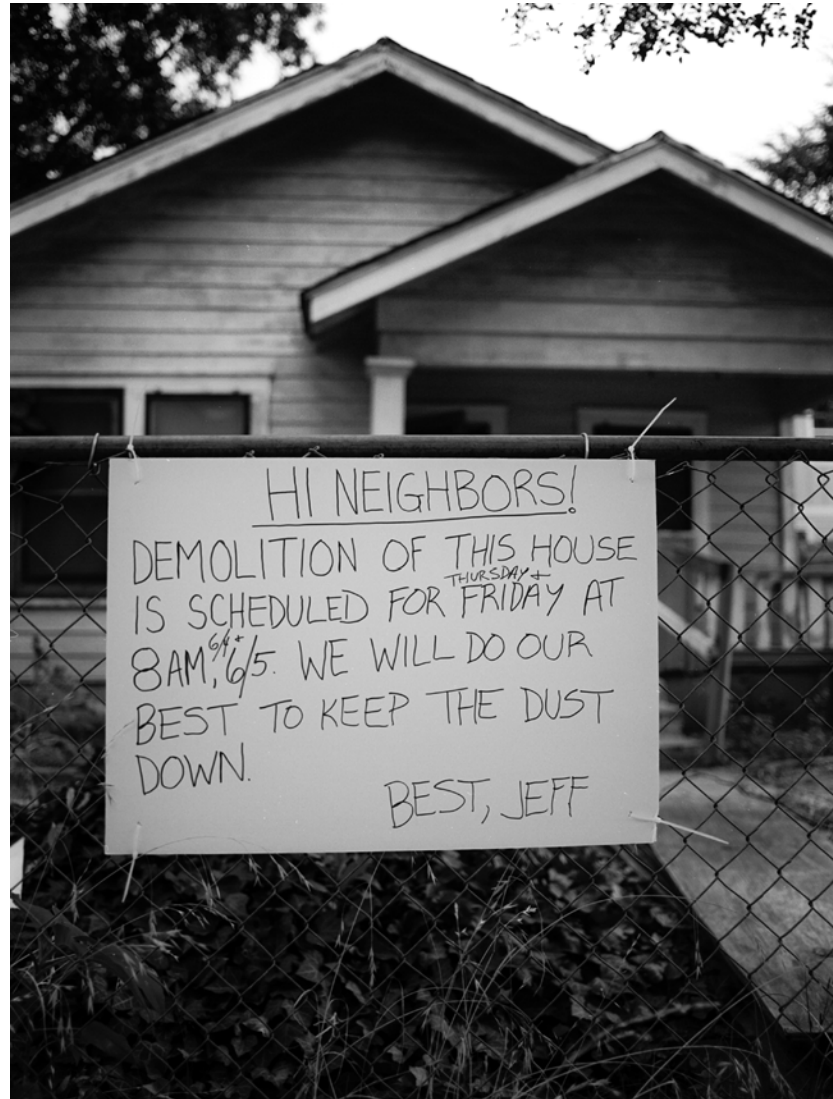 HI NEIGHBORS!
DEMOLITION OF THIS HOUSE
IS SCHEDULED FOR THURSDAY + FRIDAY AT
8AM, 6/4 + 6/5. WE WILL DO OUR
BEST TO KEEP THE DUST
DOWN.
BEST, JEFF